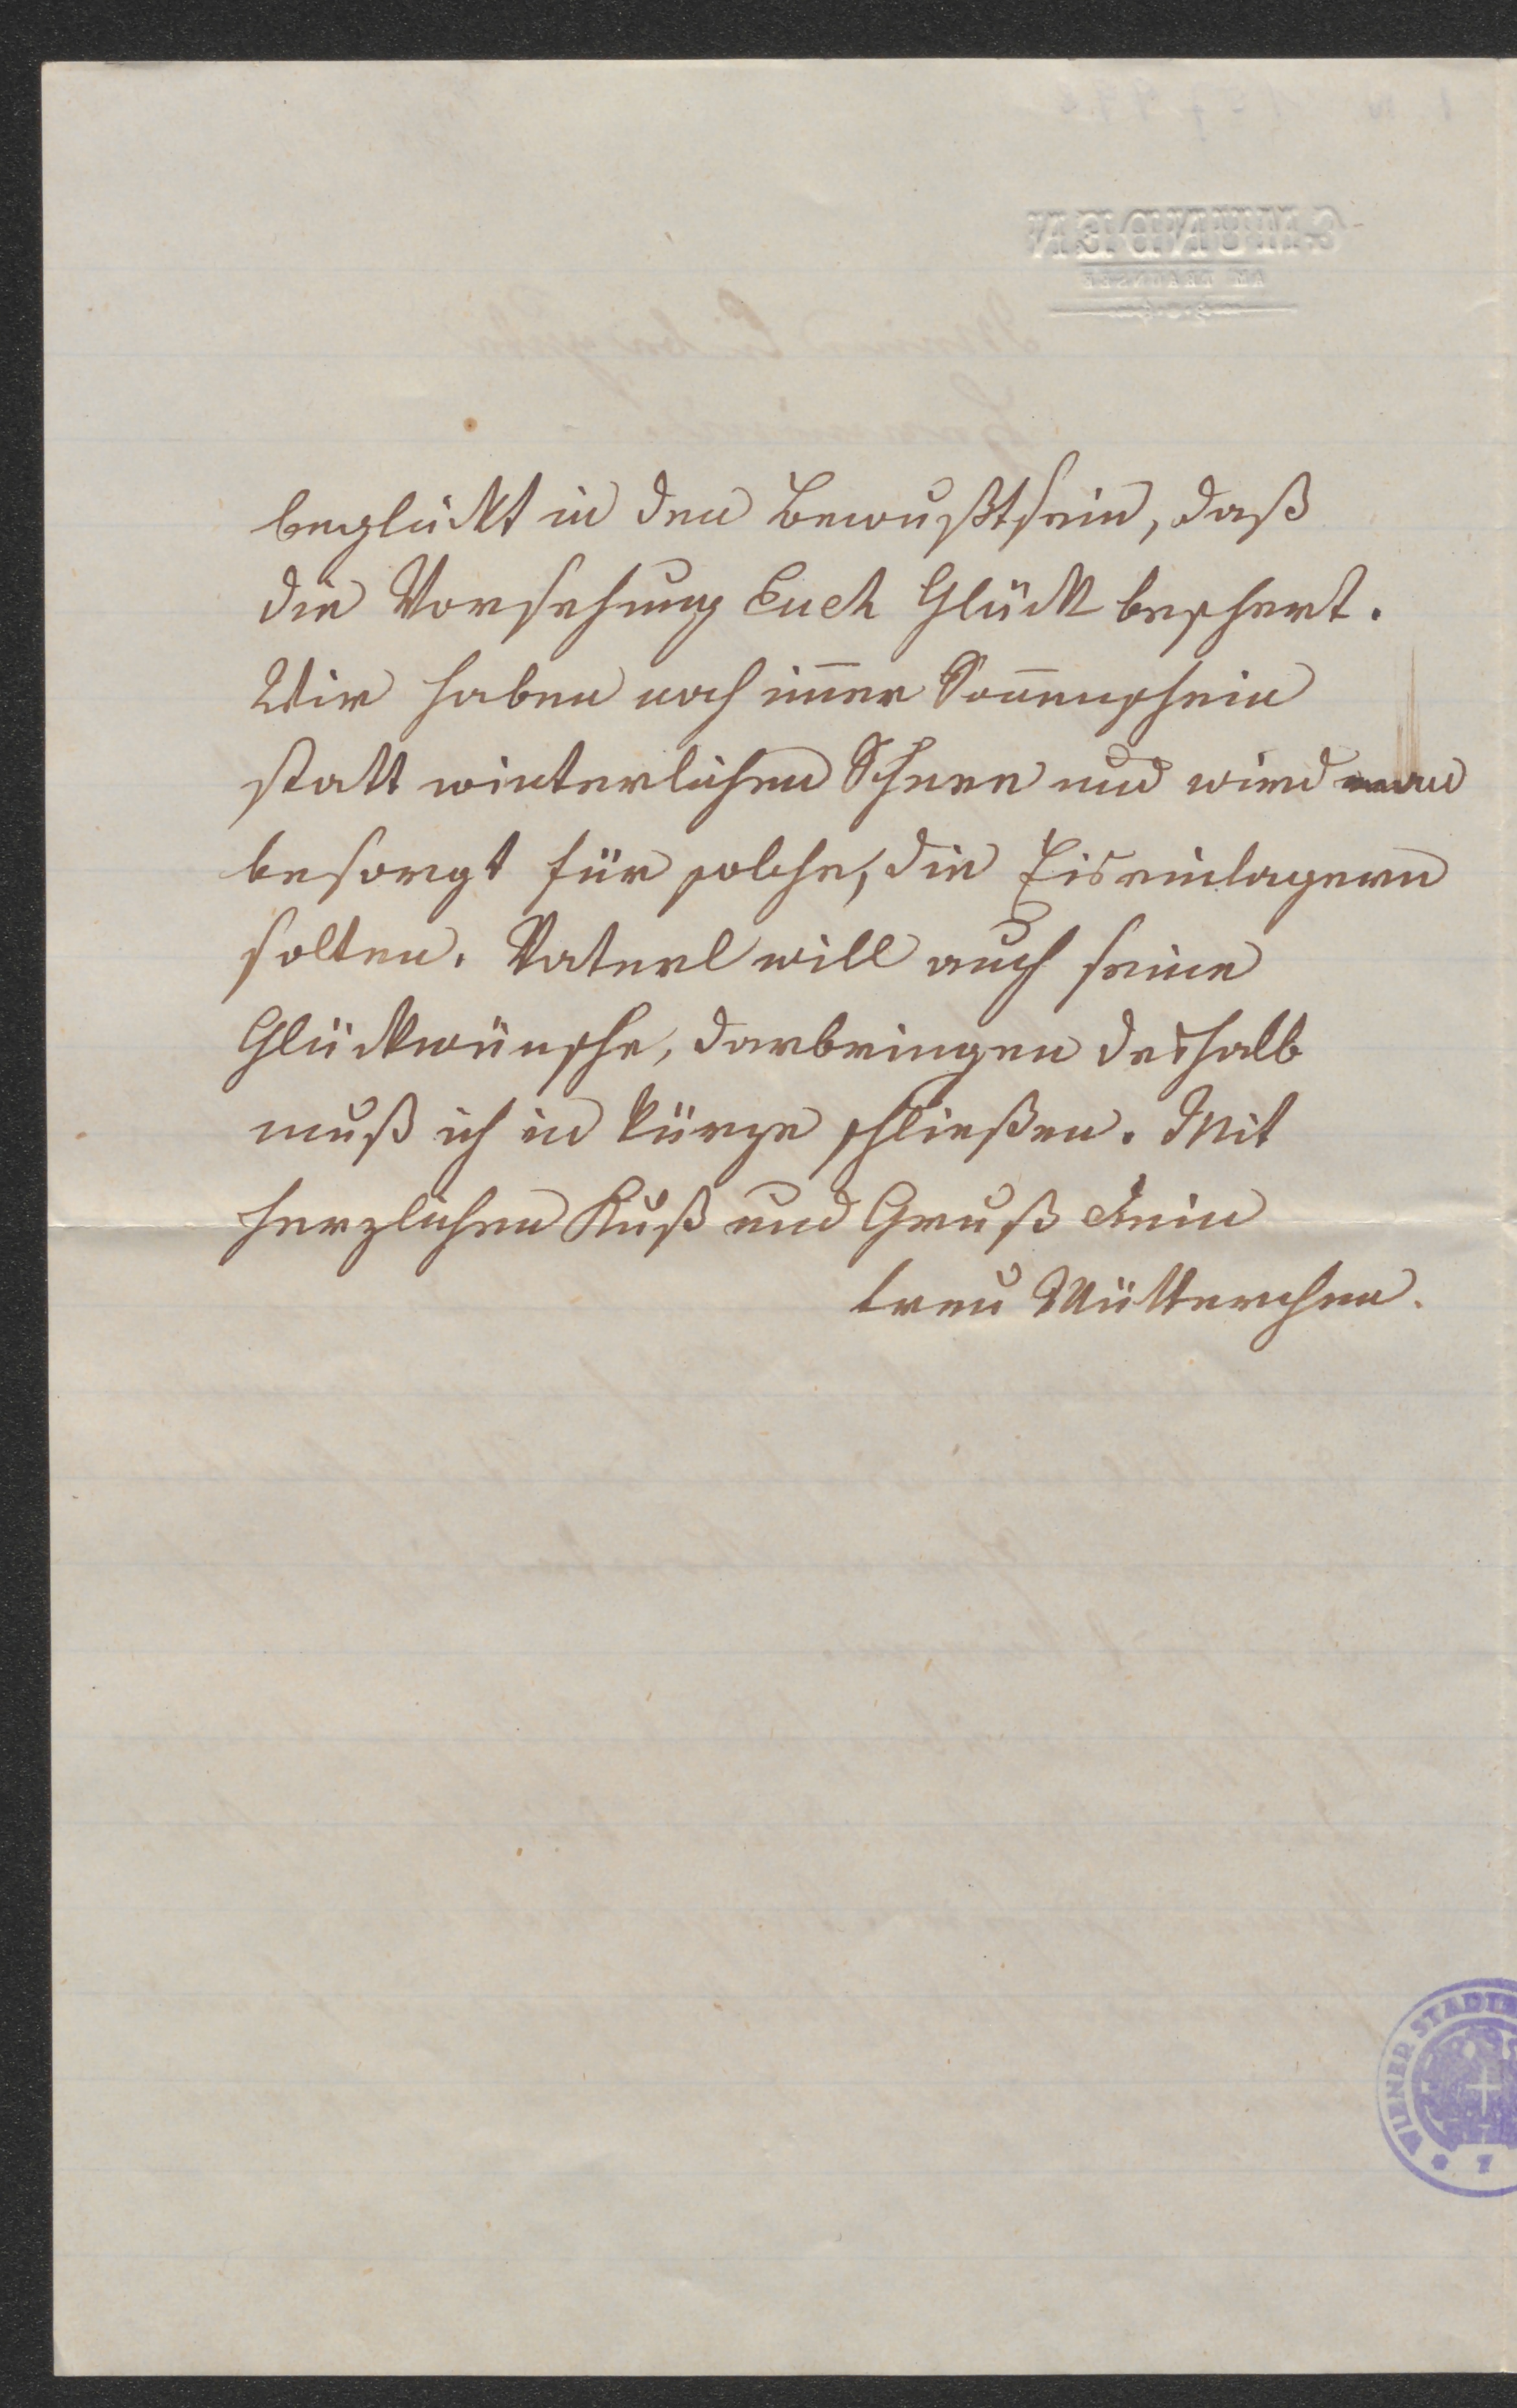 GMUNDEN
AM TRAUNSEE
beglückt in den Bewußtsein, daß
die Vorsehung Euch Glück beschert.
Wir haben noch im̅er Son̅enschein
statt winterlichen Schnee und wird man
besorgt für solche, die Eis einlagern
solten. Vaterl will auch seine
Glückwünsche, darbringen deshalb
muß ich in Kürze schließen. Mit
herzlichen Kuß und Gruß Dein
treu Mütterchen.
WIENER STADT
7